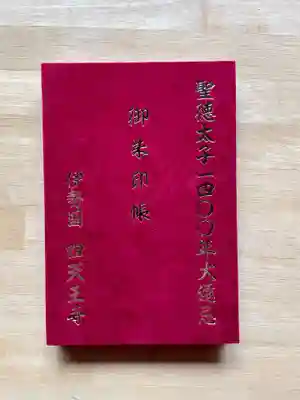 聖徳太子一四〇〇年大遠忌
御朱印帳
伊勢国 四天王寺